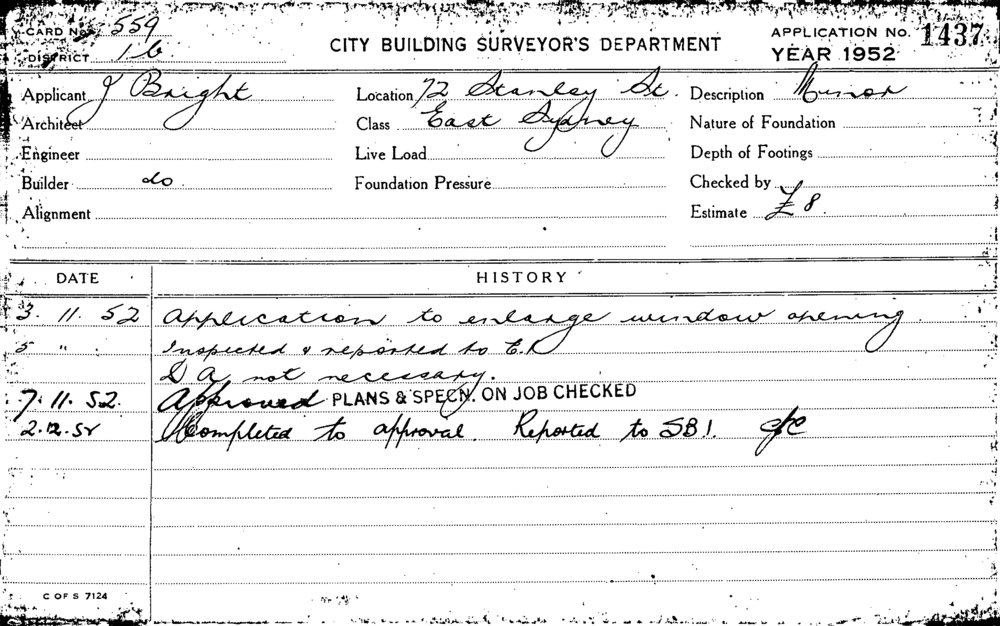 CARD No. 559
DISTRICT 16
CITY BUILDING SURVEYOR'S DEPARTMENT
APPLICATION No. 1437
YEAR 1952
Applicant J Bright Location 72 Stanley St. Description Minor
Architect Class East Sydney Nature of Foundation
Engineer Live Load Depth of Footings
Builder do Foundation Pressure Checked by
Alignment Estimate £8.
DATE HISTORY
3. 11. 52 Application to enlarge window opening
5 " . Inspected & reported to
D A not necessary.
7. 11. 52. Approved PLANS & SPECN. ON JOB CHECKED
2.12.52 Completed to approval. Reported to SBI.
C OF S 7124